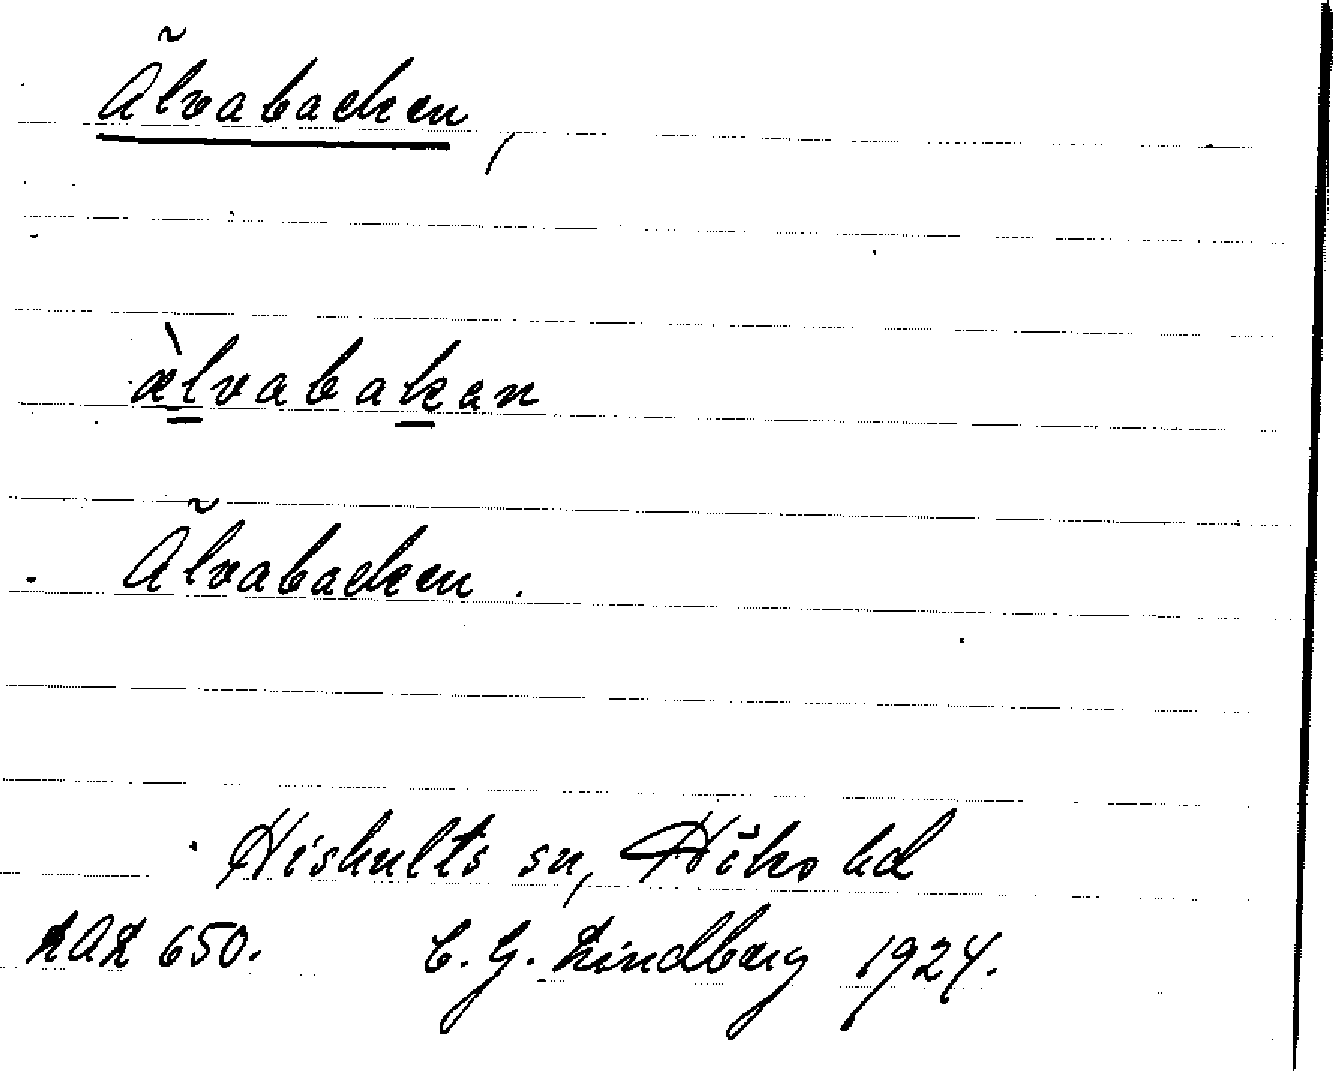 Älvabacken,
æ̀lvabakan
Älvabacken.
Hishults sn, Höks hd
LAL 650. C. G. Lindberg 1924.